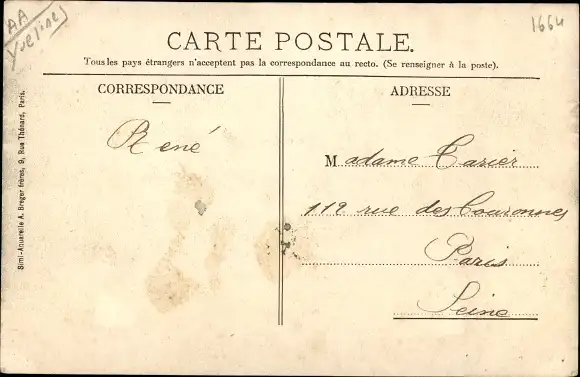 AA
Yvelines
1664
CARTE POSTALE.
Tous les pays étrangers n'acceptent pas la correspondance au recto. (Se renseigner à la poste).
CORRESPONDANCE
ADRESSE
René
Madame Tarier
112 rue des Couronnes
Paris
Seine
Simi-Aquarelle A. Breger frères, 9, Rue Thénard, Paris.